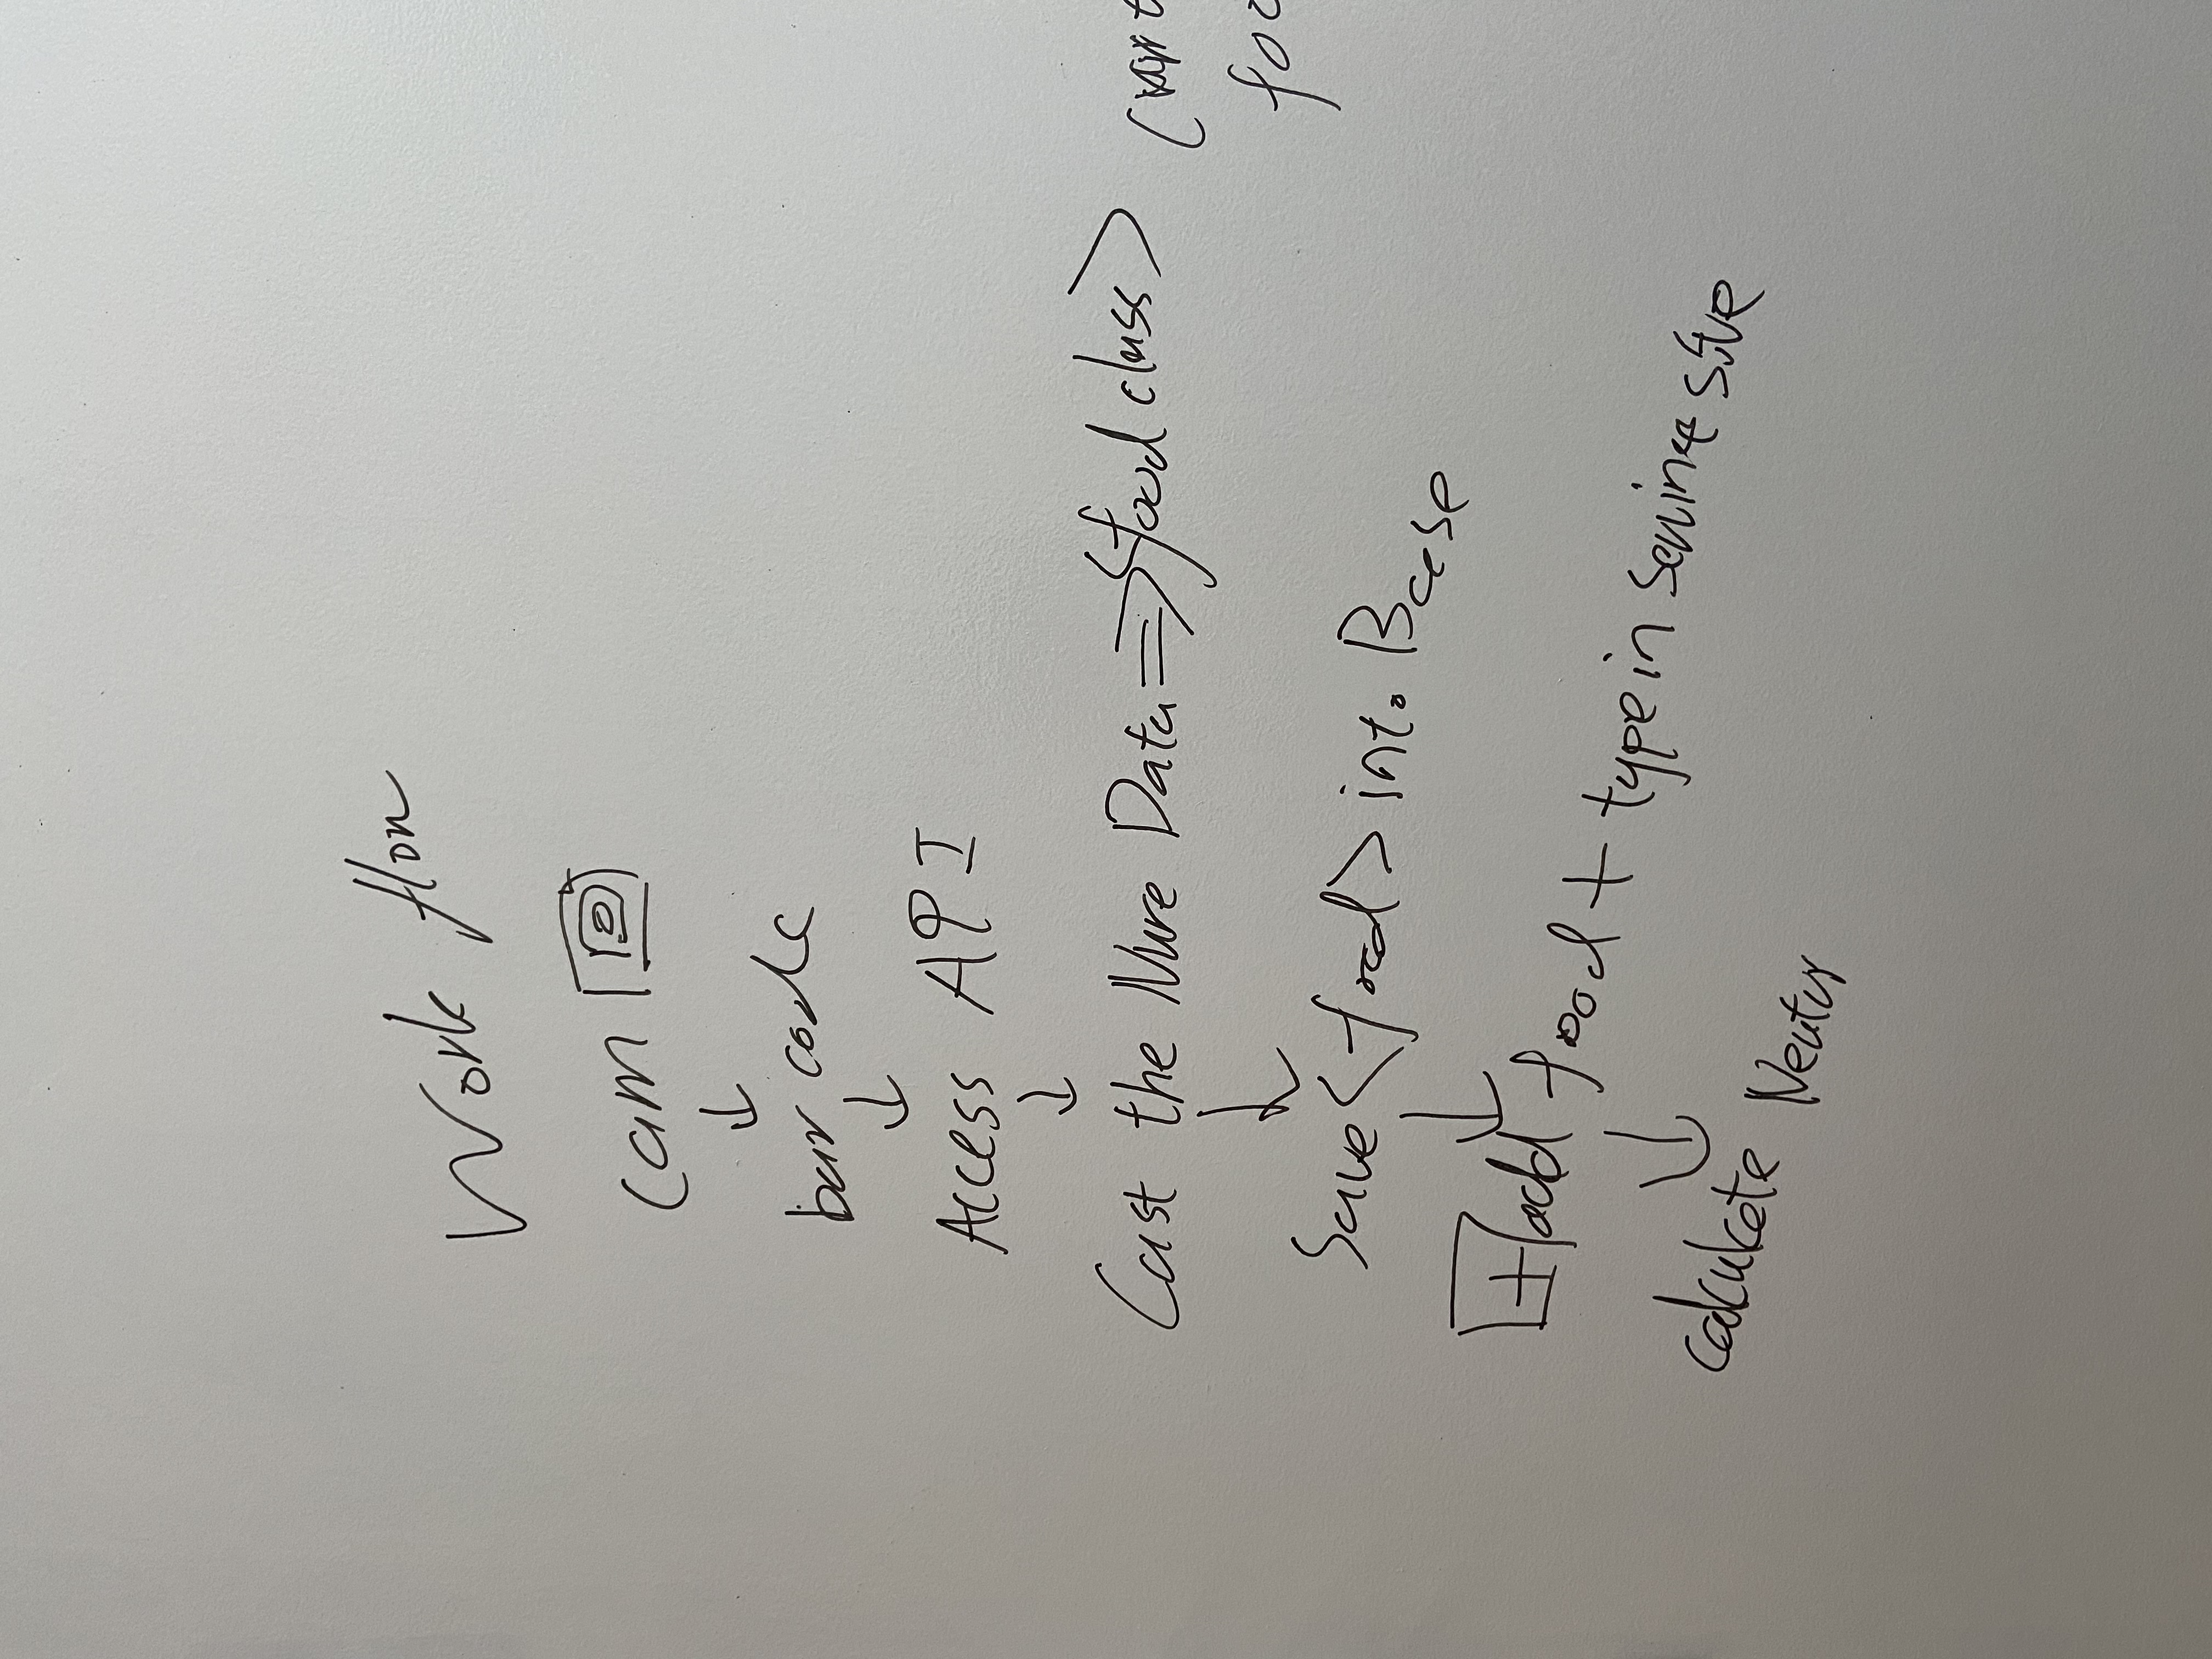 Work flow
Cam
bar code
Access API
Cast the Nure Data => <food class>
Save <food> into Base
+ add food + type in serving size
calculate Neutur